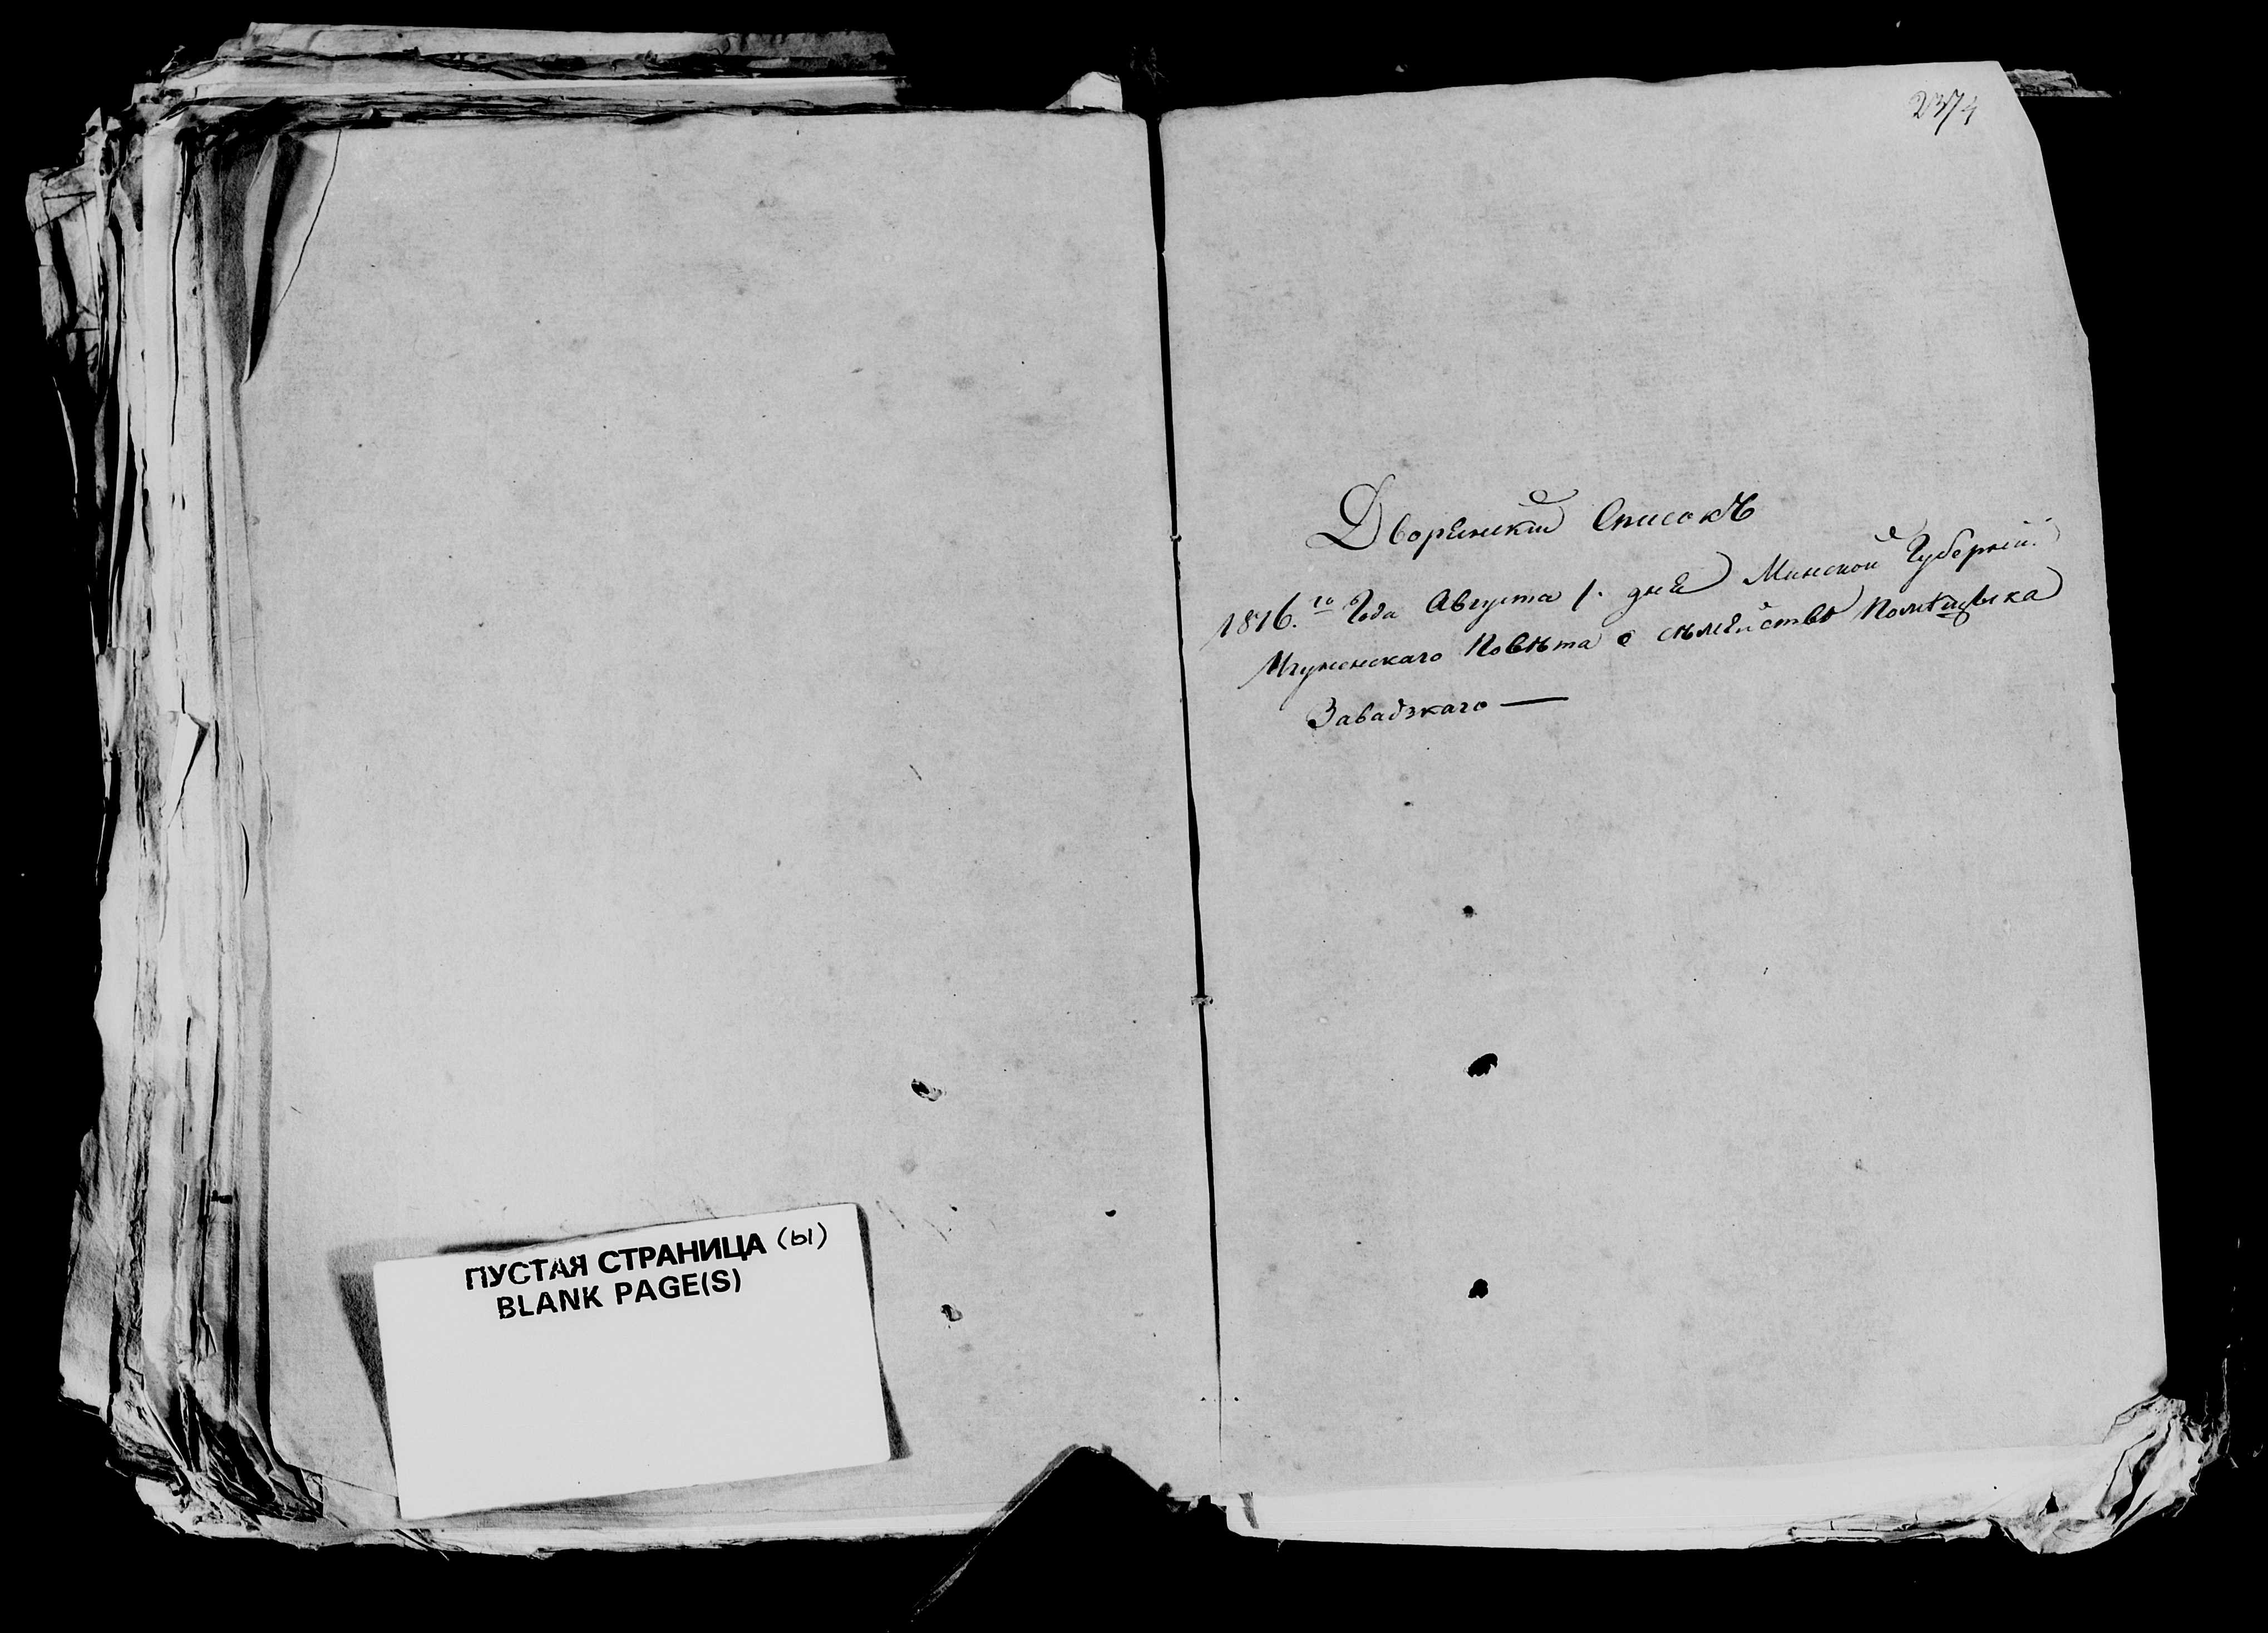 ПУСТАЯ СТРАНИЦА (ы)
BLANK PAGE(S)
2374
Дворенский Списокъ
1816.го Года Августа 1. дня Минской Губернїи
Игуменскаго Повѣта о сѣмействѣ Помѣщыка
Завадзкаго —